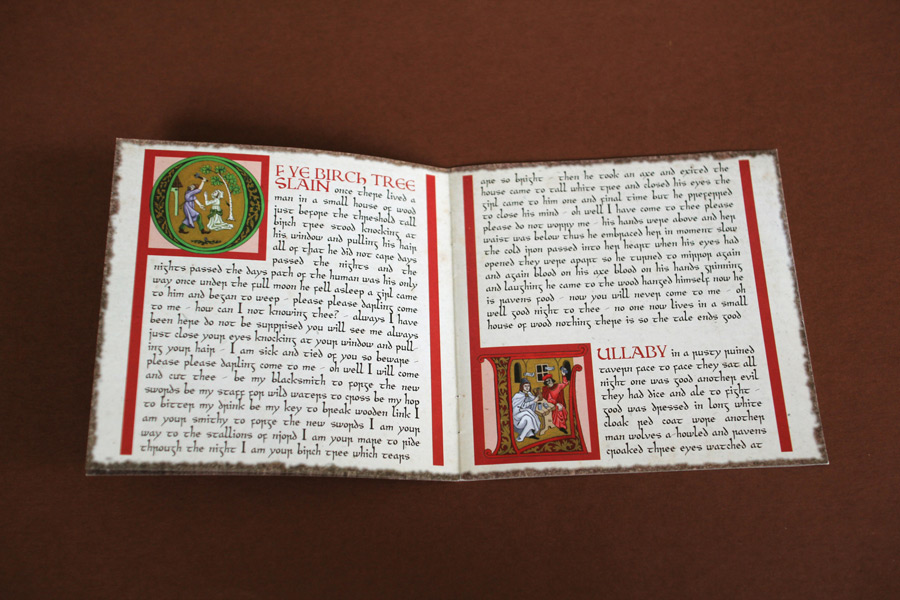 OF YE BIRCH TREE
SLAIN once there lived a
man in a small house of wood
just before the threshold tall
birch tree stood knocking at
his window and pulling his hair
all of that he did not care days
passed the nights and the
nights passed the days path of the human was his only
way once under the full moon he fell asleep a girl came
to him and began to weep - please please darling come
to me - how can I not knowing thee? - always I have
been here do not be surprised you will see me always
just close your eyes knocking at your window and pull-
ing your hair - I am sick and tied of you so beware -
please please darling come to me - oh well I will come
and cut thee - be my blacksmith to forge the new
swords be my staff for wild waters to cross be my hop
to bitter my drink be my key to break wooden link I
am your smithy to forge the new swords I am your
way to the stallions of njord I am your mare to ride
through the night I am your birch tree which tears
are so bright - then he took an axe and exited the
house came to tall white tree and closed his eyes the
girl came to him one and final time but he preferred
to close his mind - oh well I have come to thee please
please do not worry me - his hands were above and her
waist was below thus he embraced her in moment slow
the cold iron passed into her heart when his eyes had
opened they were apart so he turned to mirror again
and again blood on his axe blood on his hands grinning
and laughing he came to the wood hanged himself now he
is ravens food - now you will never come to me - oh
well good night to thee - no one now lives in a small
house of wood nothing there is so the tale ends good
LULLABY in a rusty ruined
tavern face to face they sat all
night one was good another evil
they had dice and ale to fight -
good was dressed in long white
cloak red coat wore another
man wolves a-howled and ravens
croaked three eyes watched at